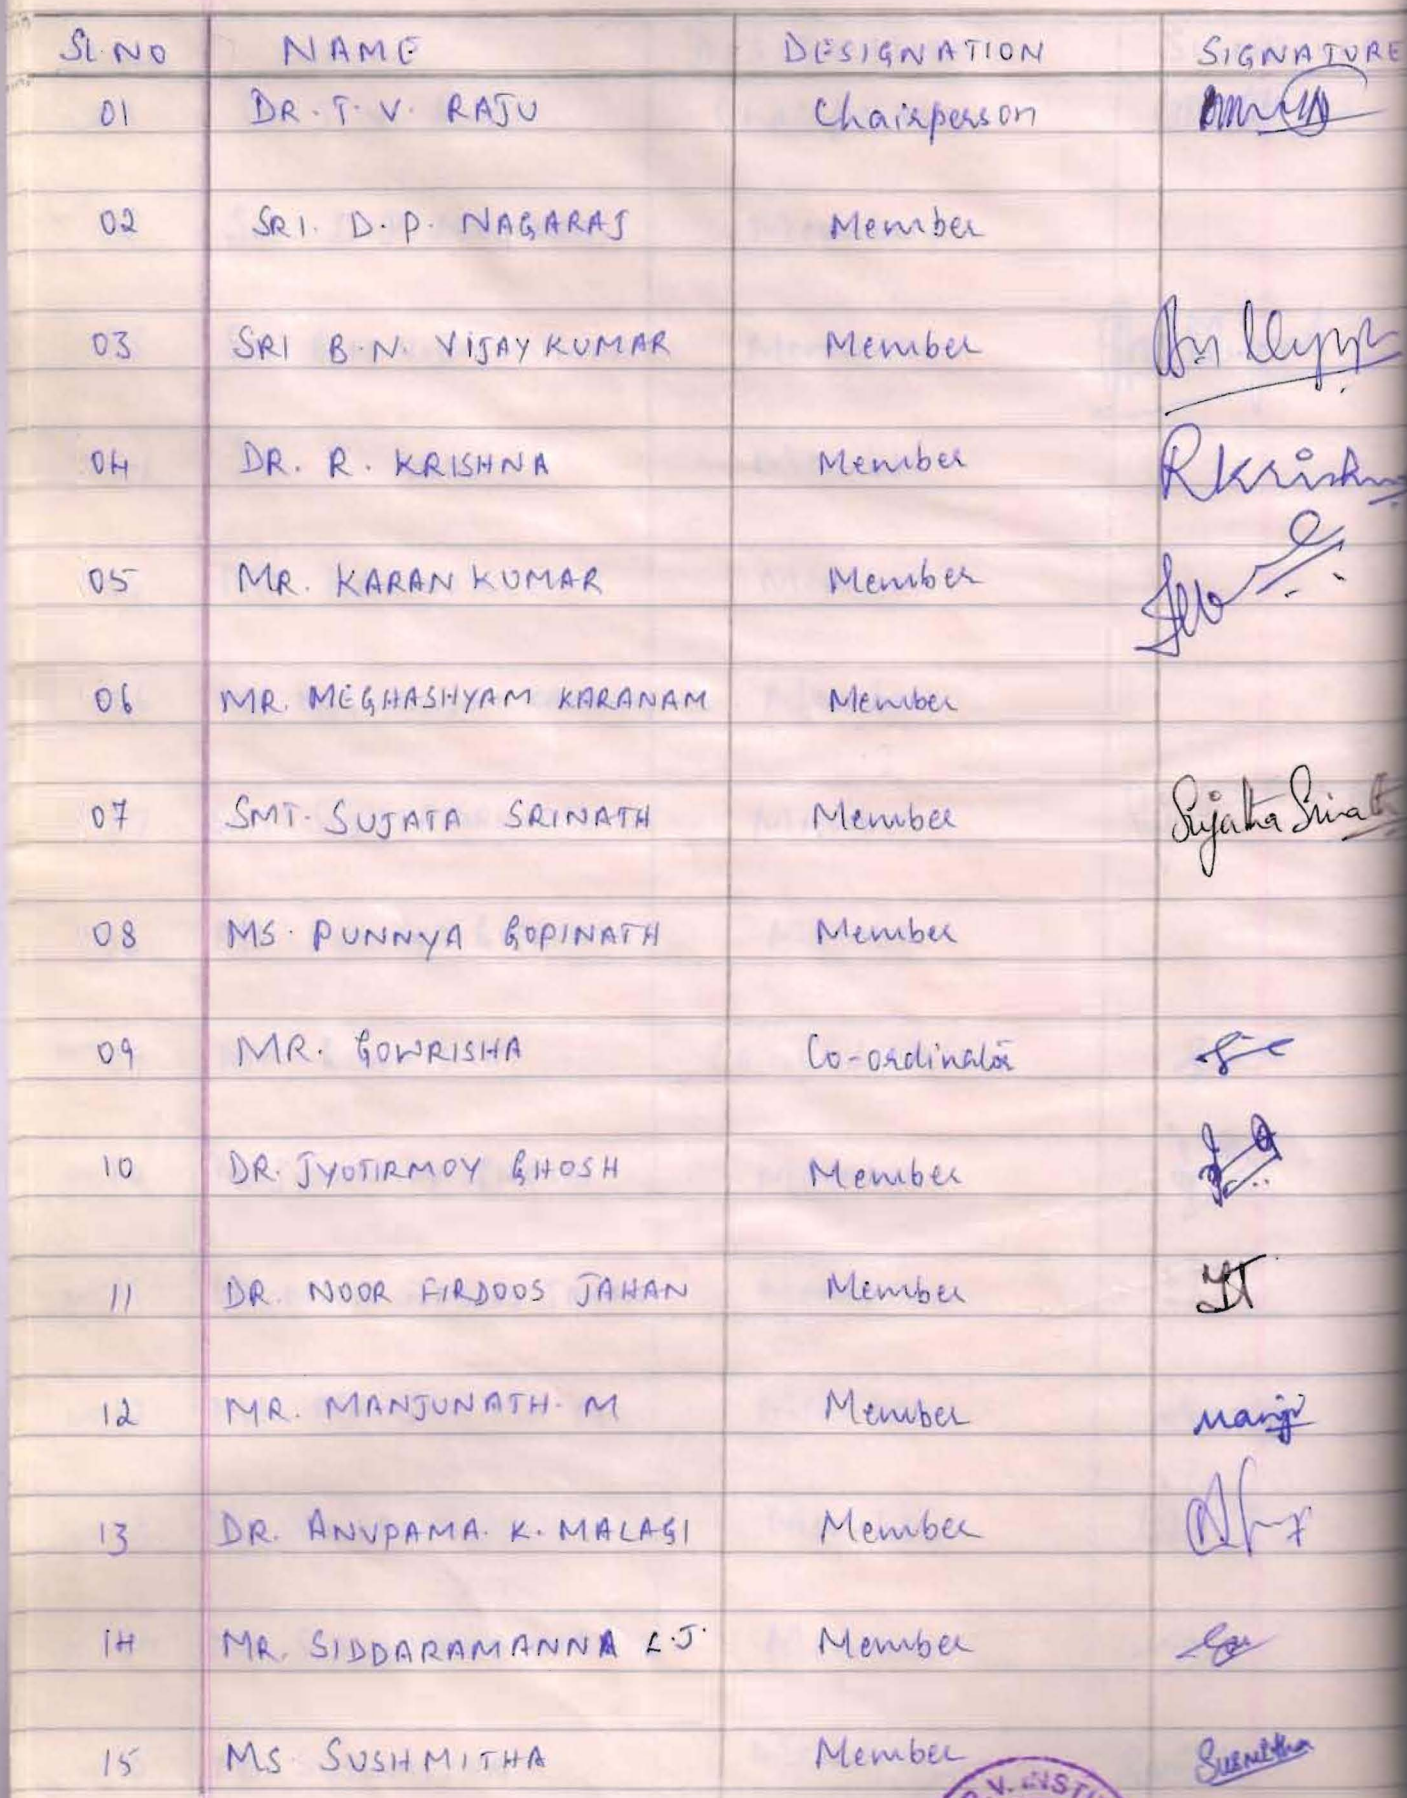 SL.NO NAME DESIGNATION SIGNATURE
01 DR. T. V. RAJU Chairperson
02 SRI. D. P. NAGARAJ Member
03 SRI B. N. VIJAY KUMAR Member
04 DR. R. KRISHNA Member R Krishna
05 MR. KARAN KUMAR Member
06 MR. MEGHASHYAM KARANAM Member
07 SMT. SUJATA SRINATH Member Sujatha Srinath
08 MS. PUNNYA GOPINATH Member
09 MR. GOWRISHA Co-ordinator
10 DR. JYOTIRMOY GHOSH Member
11 DR. NOOR FIRDOOS JAHAN Member
12 MR. MANJUNATH. M Member Manju
13 DR. ANUPAMA. K. MALAGI Member
14 MR. SIDDARAMANNA L.J. Member
15 MS. SUSHMITHA Member
.V. INSTI